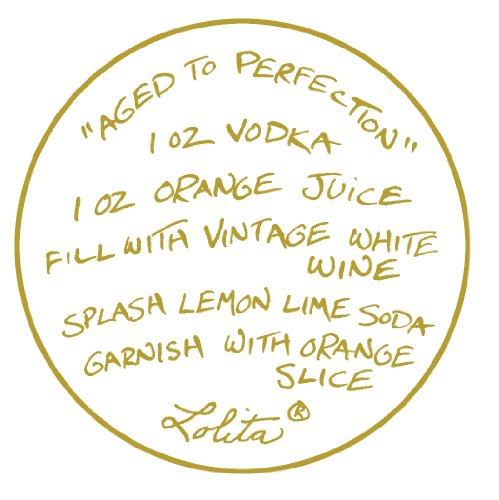 "AGED TO PERFECTION"
1 OZ VODKA
1 OZ ORANGE JUICE
FILL WITH VINTAGE WHITE
WINE
SPLASH LEMON LIME SODA
GARNISH WITH ORANGE
SLICE
Lolita®